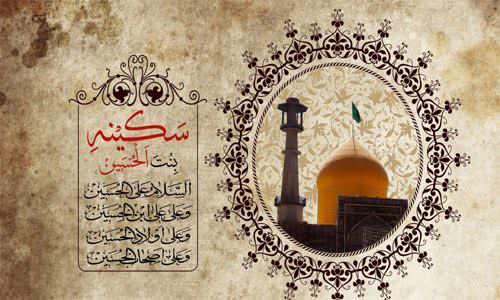 سَكینهِ
بِنت اَلْحُسَین
السَّلامُ عَلَی الحُسَین
وَ عَلی عَلیِّ ابنِ الحُسَین
وَ عَلی اَولادِ الحُسَین
وَ عَلی اَصحابِ الحُسَین